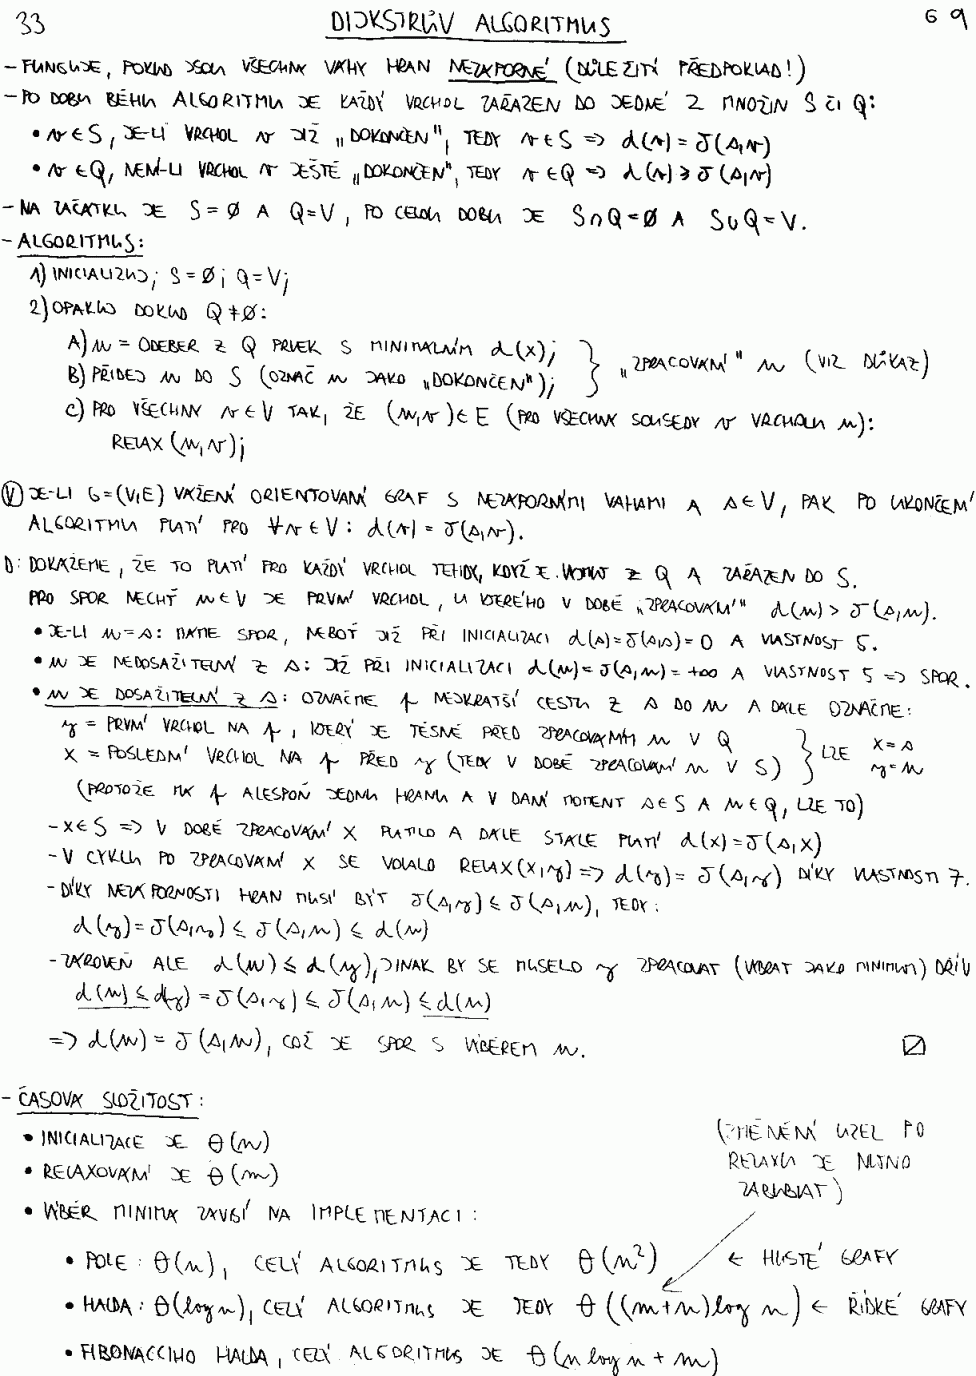 33 DIJKSTRŮV ALGORITMUS G 9
- FUNGUJE, POKUD JSOU VŠECHNY VÁHY HRAN NEZÁPORNÉ (DŮLEŽITÝ PŘEDPOKLAD!)
- PO DOBU BĚHU ALGORITMU JE KAŽDÝ VRCHOL ZAŘAZEN DO JEDNÉ Z MNOŽIN S ČI Q:
• v ∈ S, JE-LI VRCHOL v JIŽ „DOKONČEN", TEDY v ∈ S => d(v) = δ(s,v)
• v ∈ Q, NENÍ-LI VRCHOL v JEŠTĚ „DOKONČEN", TEDY v ∈ Q => d(v) ≥ δ(s,v)
- NA ZAČÁTKU JE S = ∅ A Q = V, PO CELOU DOBU JE S ∩ Q = ∅ A S ∪ Q = V.
- ALGORITMUS:
1) INICIALIZUJ; S = ∅; Q = V;
2) OPAKUJ DOKUD Q ≠ ∅:
A) u = ODEBER Z Q PRVEK S MINIMÁLNÍM d(x);
B) PŘIDEJ u DO S (OZNAČ u JAKO „DOKONČEN"); } „ZPRACOVÁNÍ" u (VIZ DŮKAZ)
C) PRO VŠECHNY v ∈ V TAK, ŽE (u,v) ∈ E (PRO VŠECHNY SOUSEDY v VRCHOLU u):
RELAX(u,v);
(V) JE-LI G=(V,E) VÁŽENÝ ORIENTOVANÝ GRAF S NEZÁPORNÝMI VÁHAMI A s ∈ V, PAK PO UKONČENÍ
ALGORITMU PLATÍ PRO ∀v ∈ V: d(v) = δ(s,v).
D: DOKÁŽEME, ŽE TO PLATÍ PRO KAŽDÝ VRCHOL TEHDY, KDYŽ JE VYJMUT Z Q A ZAŘAZEN DO S.
PRO SPOR NECHŤ u ∈ V JE PRVNÍ VRCHOL, U KTERÉHO V DOBĚ „ZPRACOVÁNÍ" d(u) > δ(s,u).
• JE-LI u = s: MÁME SPOR, NEBOŤ JIŽ PŘI INICIALIZACI d(s) = δ(s,s) = 0 A VLASTNOST 5.
• u JE NEDOSAŽITELNÝ Z s: JIŽ PŘI INICIALIZACI d(u) = δ(s,u) = +∞ A VLASTNOST 5 => SPOR.
• u JE DOSAŽITELNÝ Z s: OZNAČME p NEJKRATŠÍ CESTU Z s DO u A DÁLE OZNAČME:
y = PRVNÍ VRCHOL NA p, KTERÝ JE TĚSNĚ PŘED ZPRACOVÁNÍM u V Q
x = POSLEDNÍ VRCHOL NA p PŘED y (TEDY V DOBĚ ZPRACOVÁNÍ u V S) } LZE x = s y = u
(PROTOŽE MÁ p ALESPOŇ JEDNU HRANU A V DANÝ MOMENT s ∈ S A u ∈ Q, LZE TO)
- x ∈ S => V DOBĚ ZPRACOVÁNÍ x PLATILO A DÁLE STÁLE PLATÍ d(x) = δ(s,x)
- V CYKLU PO ZPRACOVÁNÍ x SE VOLALO RELAX(x,y) => d(y) = δ(s,y) DÍKY VLASTNOSTI 7.
- DÍKY NEZÁPORNOSTI HRAN MUSÍ BÝT δ(s,y) ≤ δ(s,u), TEDY:
d(y) = δ(s,y) ≤ δ(s,u) ≤ d(u)
- ZÁROVEŇ ALE d(u) ≤ d(y), JINAK BY SE MUSELO y ZPRACOVAT (VYBRAT JAKO MINIMUM) DŘÍV
d(u) ≤ d(y) = δ(s,y) ≤ δ(s,u) ≤ d(u)
=> d(u) = δ(s,u), COŽ JE SPOR S VÝBĚREM u.
- ČASOVÁ SLOŽITOST:
• INICIALIZACE JE Θ(n)
• RELAXOVÁNÍ JE Θ(m)
• VÝBĚR MINIMA ZÁVISÍ NA IMPLEMENTACI:
(ZMĚNĚNÝ UZEL PO
RELAXU JE NUTNO
ZABUBLAT)
• POLE: Θ(n), CELÝ ALGORITMUS JE TEDY Θ(n²) ← HUSTÉ GRAFY
• HALDA: Θ(log n), CELÝ ALGORITMUS JE TEDY Θ((m+n) log n) ← ŘÍDKÉ GRAFY
• FIBONACCIHO HALDA, CELÝ ALGORITMUS JE Θ(n log n + m)